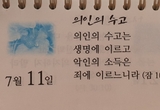 의인의 수고
의인의 수고는
생명에 이르고
악인의 소득은
죄에 이르느니라 (잠 10
7월 11일